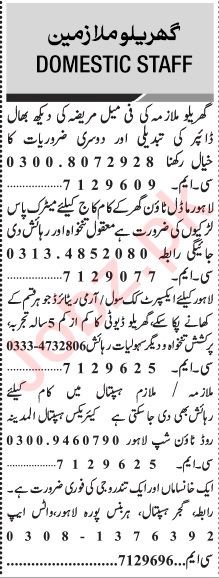 گھریلو ملازمین
DOMESTIC STAFF
گھریلو ملازمہ کی فی میل مریضہ کی دیکھ بھال
ڈائپر کی تبدیلی اور دوسری ضروریات کا
خیال رکھنا 0300.8072928
سی۔ایم۔ 7129609
لاہور ماڈل ٹاؤن گھر کے کام کاج کیلئے میٹرک پاس
لڑکیوں کی ضرورت ہے معقول تنخواہ اور رہائش دی
جائیگی رابطہ 0313.4852080
سی۔ایم۔ 7129077
لاہور کیلئے ایکسپرٹ کک سول/آرمی ریٹائرڈ جو ہر قسم کے
کھانے پکا سکے گھریلو ڈیوٹی کا کم از کم 5 سالہ تجربہ،
پرکشش تنخواہ و دیگر سہولیات رہائش 4732806-0333
سی۔ایم۔ 7129625
ملازمہ / ملازم ہسپتال میں کام کیلئے
رہائش بھی دی جا سکتی ہے کیئر ہسپتال المدینہ
روڈ ٹاؤن شپ لاہور 0300.9460790
سی۔ایم۔ 7129625
ایک خانساماں اور ایک تندورچی کی فوری ضرورت ہے۔
رابطہ گجر ہسپتال، ہربنس پورہ لاہور، واٹس ایپ
0308-1376392
سی۔ایم۔ 7129696...